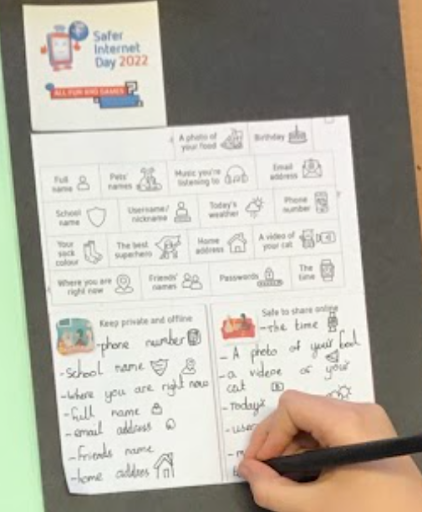 Safer
Internet
Day 2022
ALL FUN AND GAMES?
A photo of your food
Birthday
Full name
Pets' names
Music you're listening to
Email address
School name
Username/nickname
Today's weather
Phone number
Your sock colour
The best superhero
Home address
A video of your cat
Where you are right now
Friends' names
Passwords
The time
Keep private and offline
-phone number
-School name
-where you are right now
-full name
-email address
-friends name
-home address
Safe to share online
-the time
-A photo of your food
-a videoe of your
cat
-Today's